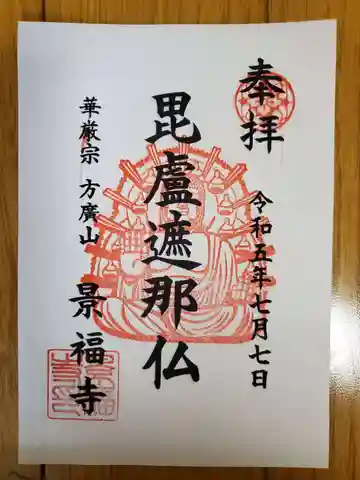 奉拝
令和五年七月七日
毘盧遮那仏
華厳宗 方廣山
景福寺